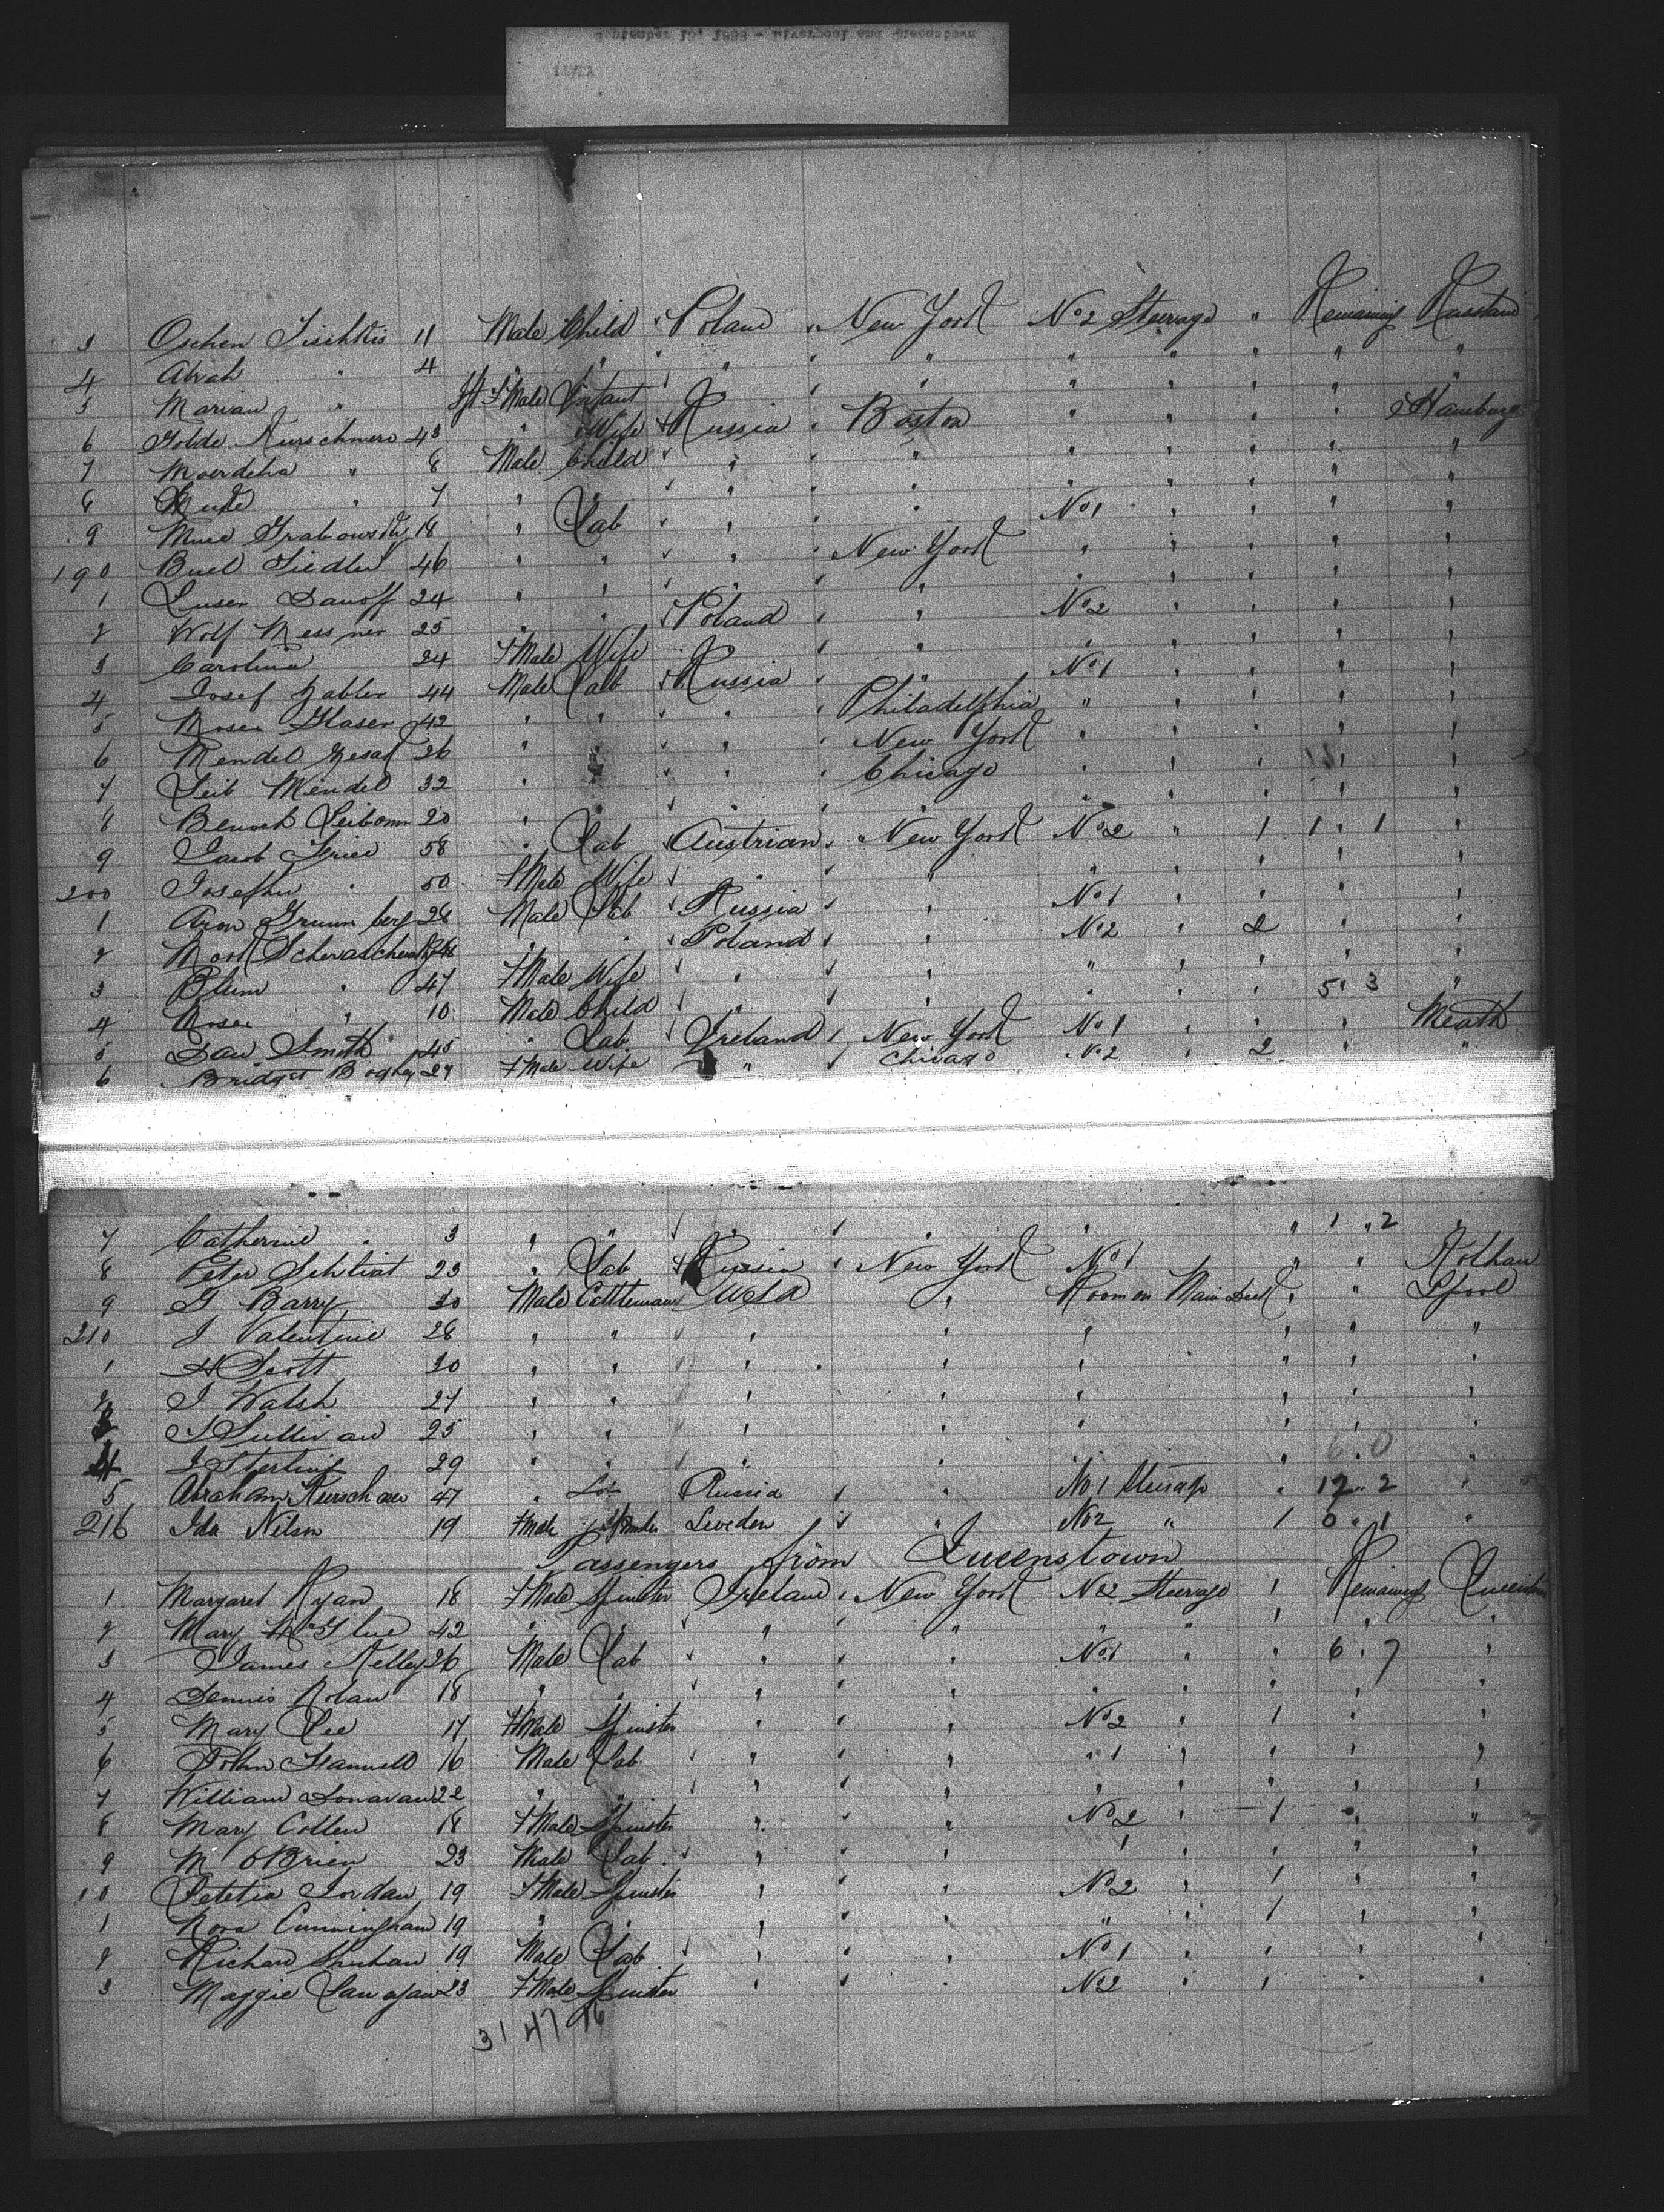 September 10, 1888 - Liverpool and Queenstown
3 Oschen Tischkis 11 Male Child Poland New York No 2 Steerage " Remaining Russland
4 Abrah " 4 " " " " " " " " "
5 Marian " FMale Infant " " " " " " "
6 Golde Kurschnero 43 " Wife Russia Boston " " " " Hamburg
7 Moerdcha " 8 Male Child " " " " " " "
8 " 7 " " " " " " " "
9 Grabowsky 18 " Lab " " No 1 " " " "
190 Buel Siedler 46 " " " New York " " " " "
1 Luser Danoff 24 " " " " " " " " "
2 Wolf Messner 25 " " Poland " No 2 " " " "
3 Carolina 24 FMale Wife " " " " " " "
4 Josef Zabler 44 Male Lab Russia " No 1 " " " "
5 Moses Glaser 42 " " " Philadelphia " " " " "
6 Mendel 26 " " " New York " " " " "
7 Leib Mendel 32 " " " Chicago " " " " "
8 Benoch Leibomn 20 " " " " " " " " "
9 Jacob Fried 58 " Lab Austrian New York No 2 " 1 1 " 1 "
200 Josephu " 50 FMale Wife " " " " " " "
1 Aron Grunnberg 28 Male Lab Russia " No 1 " " " "
2 46 " " Poland " No 2 " 2 " "
3 Blum " 47 FMale Wife " " " " " " "
4 Moses " 10 Male Child " " " " " 5 " 3 "
5 Dan Smith 45 " Lab Ireland New York No 1 " " " Meath
6 Bridget 27 FMale Wife " Chicago No 2 " 2 " "
7 Catherine " 3 " " " " " " 1 " 2 "
8 Peter Schliat 23 " Lab Russia New York No 1 " "
9 G Barry 30 Male Cattleman USA " Room on Main Deck " " Lpool
210 J Valentine 28 " " " " " " " "
1 H Scott 30 " " " " " " " "
2 J Walsh 27 " " " " " " " "
3 J Sullivan 25 " " " " " " " "
4 J Sterling 29 " " " " " " 6 . 0 "
5 Abraham 47 " Lab Russia " No 1 Steerage " 12 . 2 "
216 Ida Nilson 19 FMale Spinster Sweden " No 2 " 1 0 " 1 "
Passengers from Queenstown
1 Margaret Ryan 18 FMale Spinster Ireland New York No 2 Steerage 1 Remaining Queenstown
2 Mary McGlue 42 " " " " " " 1 " "
3 James Kelley 26 Male Lab " " No 1 " " 6 . 7 "
4 Dennis Nolan 18 " " " " " " " " "
5 Mary Lee 17 FMale Spinster " " No 2 " 1 " "
6 John 16 Male Lab " " " 1 " " " "
7 William Donavan 22 " " " " " " " " "
8 Mary Collen 18 FMale Spinster " " No 2 " 1 " "
9 M OBrien 23 Male Lab " " 1 " " " "
10 Letitia Jordan 19 FMale Spinster " " No 2 " 1 " "
1 Nora Cunningham 19 " " " " " " 1 " "
2 Richard 19 Male Lab " " No 1 " " " "
3 Maggie 23 FMale Spinster " " No 2 " 1 " "
31 47 16